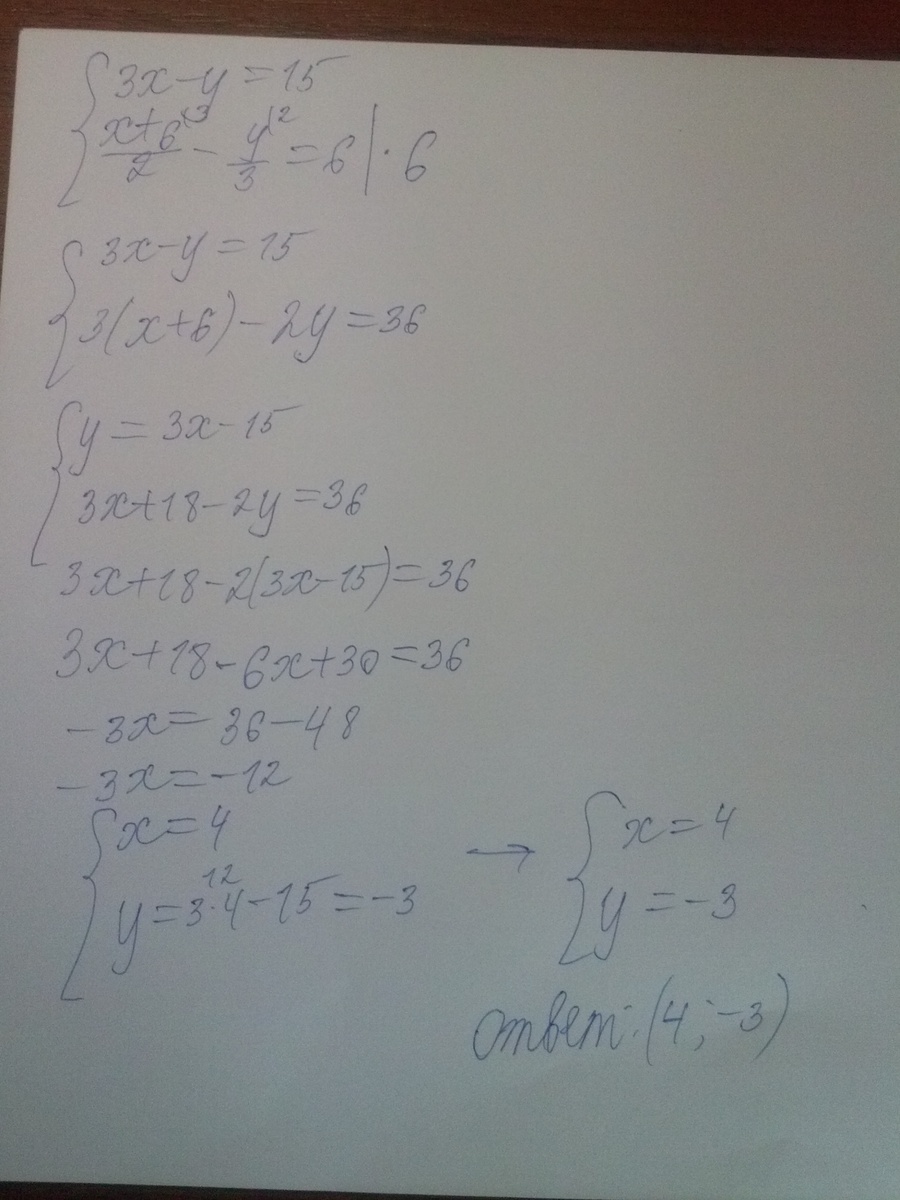 3x-y=15
(x+6)/2 ⌊3 - y/3 ⌊2 = 6 | · 6
3x-y=15
3(x+6)-2y=36
y=3x-15
3x+18-2y=36
3x+18-2(3x-15)=36
3x+18-6x+30=36
-3x=36-48
-3x=-12
x=4 → x=4
12
y=3·4-15=-3 y=-3
ответ: (4;-3)